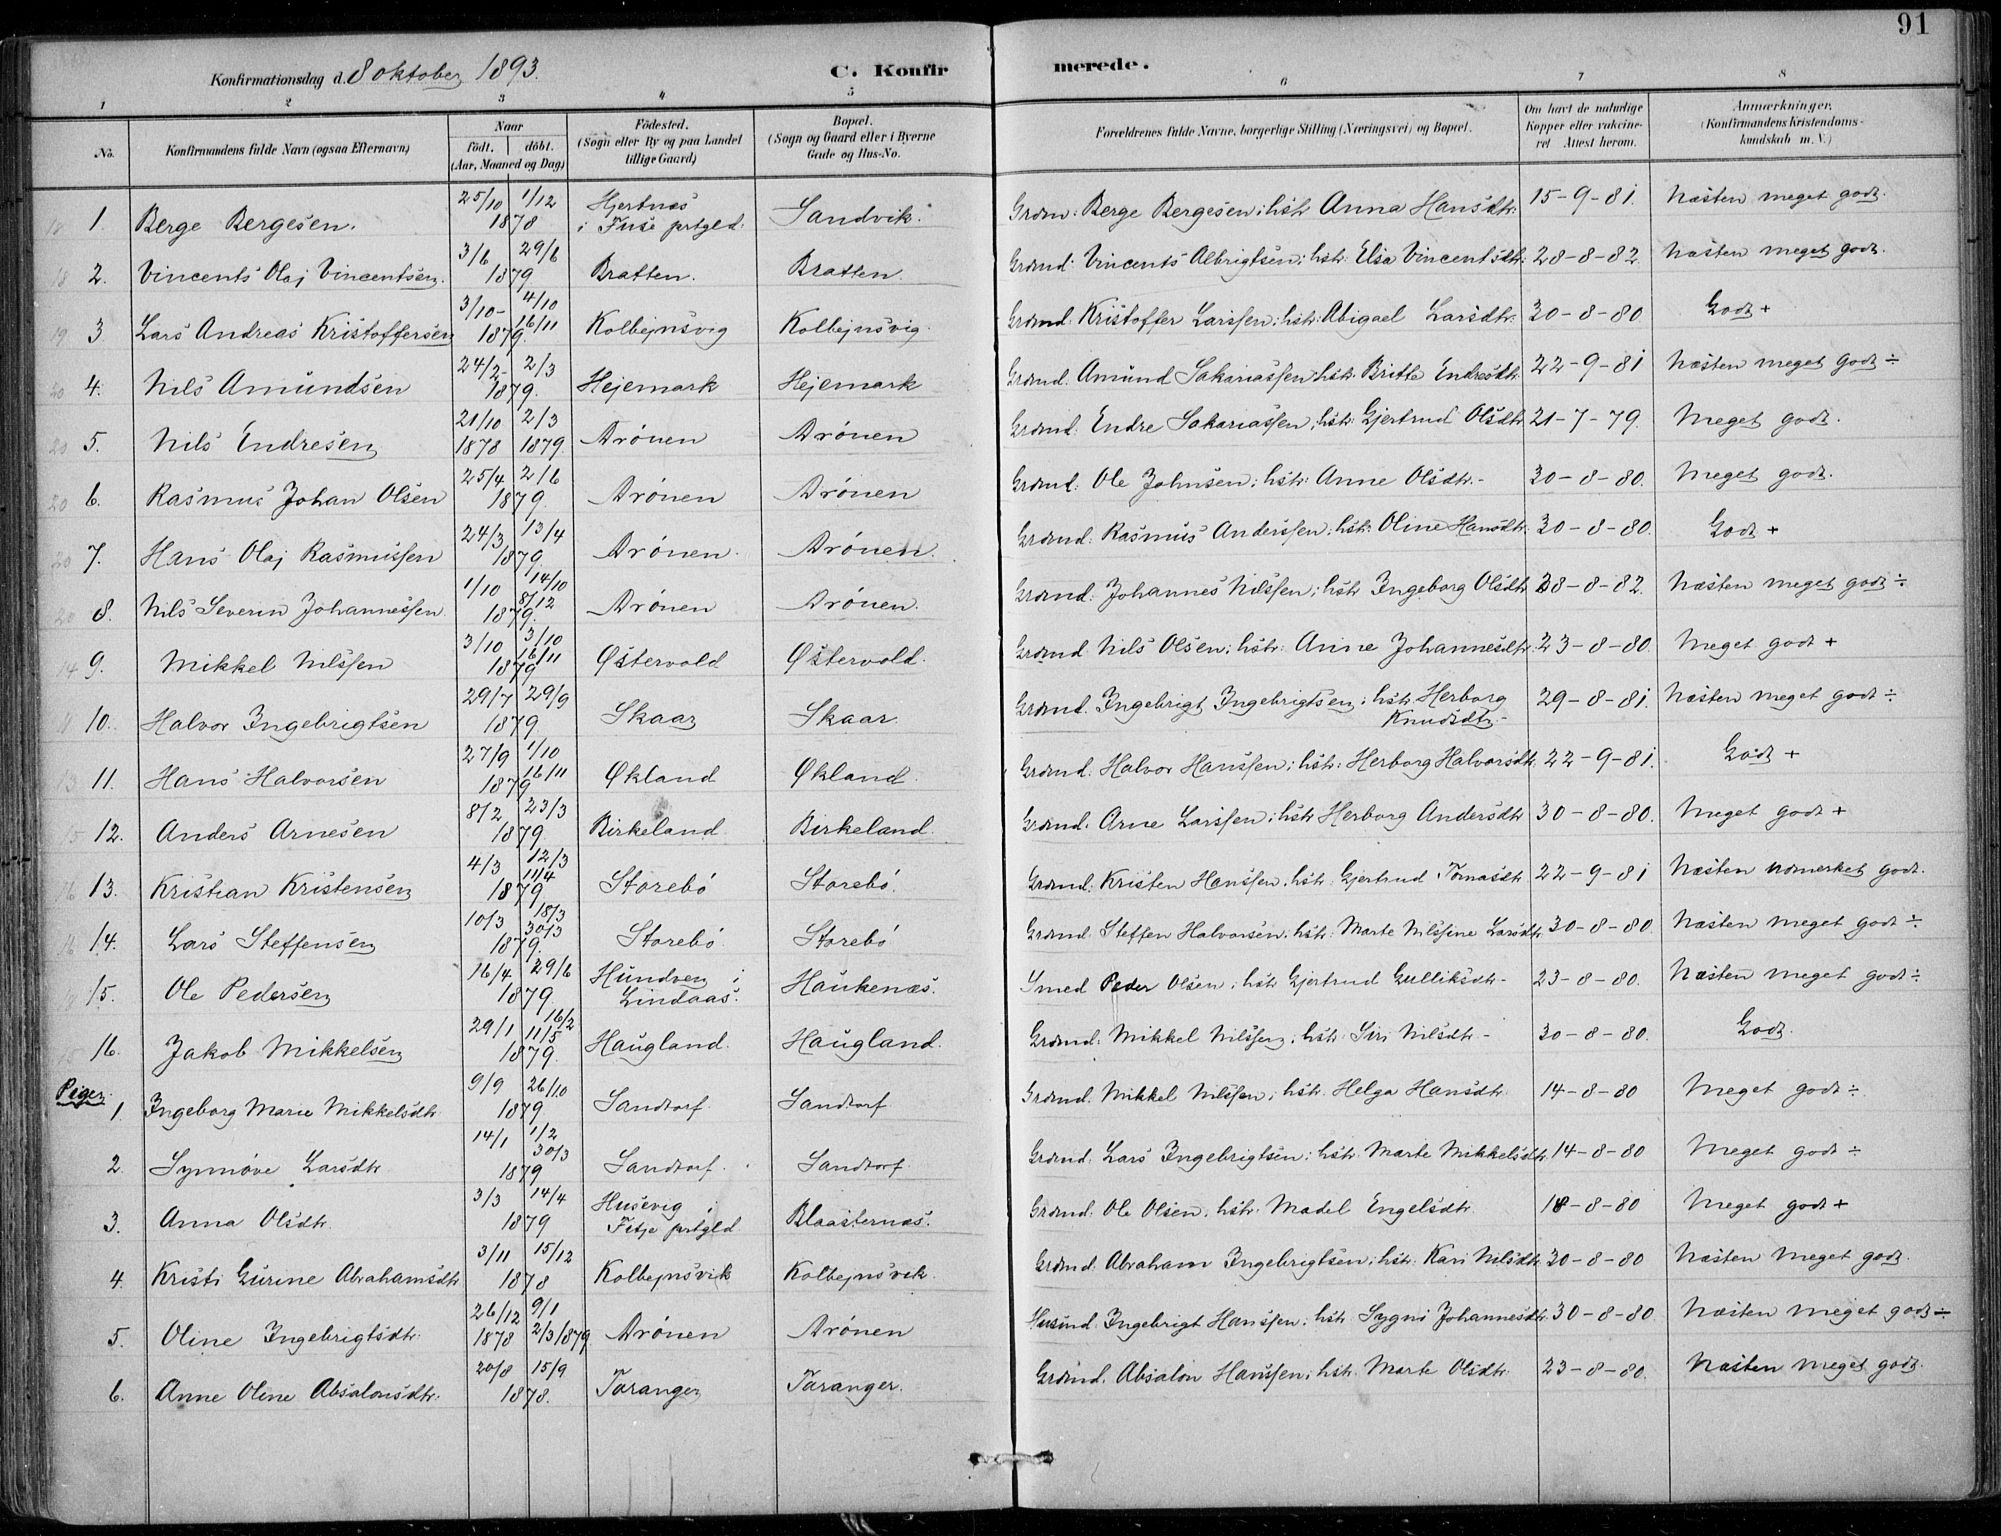 91
Konfirmationsdag d. 8 oktober 1893.
C. Konfirmerede.
1 2 3 4 5 6 7 8
No.
Konfirmandens fulde Navn (ogsaa Efternavn)
Naar
födt. döbt.
(Aar, Maaned og Dag)
Födested.
(Sogn eller By og paa Landet
tillige Gaard)
Bopæl.
(Sogn og Gaard eller i Byerne
Gade og Hus-No.
Forældrenes fulde Navne, borgerlige Stilling (Næringsvei) og Bopæl.
Om havt de naturlige
Kopper eller vakcine-
ret Attest herom.
Anmærkninger.
(Konfirmandens Kristendoms-
kundskab m. V.)
1. Berge Bergesen. 25/10 1/12 1878 Hjertnæs i Fuse prtgld. Sandvik. Grdm: Berge Bergesen; hstr Anna Hansdtr. 15-9-81. Næsten meget godt.
2. Vincents Olaj Vincentsen. 3/6 29/6 1879 Bratten. Bratten. Grdmd: Vincents Albrigtsen; hstr: Elsa Vincentsdtr. 28-8-82. Næsten meget godt.
3 Lars Andreas Kristoffersen 3/10- 4/10 16/11 1879. Kolbejnsvig Kolbejnsvig. Grdmd. Kristoffer Larssen; hstr: Abigael Larsdtr. 30-8-80 Godt +
4. Nils Amundsen 24/2- 2/3 1879. Hejemark Hejemark Grdmd. Amund Sakariassen hstr. Britte Endresdtr 22-9-81 Næsten meget godt ÷
5. Nils Endresen 21/10 2/3 1878 1879. Arönen Arönen Grdmd. Endre Sakariassen; hstr: Gjertrud Olsdtr 21-7-79. Meget godt.
6. Rasmus Johan Olsen 25/4 2/6 1879 Arönen Arönen Grdmd: Ole Johnsen; hstr: Anne Olsdtr.- 30-8-80. Meget godt.
7. Hans Olaj Rasmussen 24/3 13/4 1879. Arönen. Arönen. Grdmd. Rasmus Anderssen; hstr. Oline Hansdtr. 30-8-80. Godt +
8. Nils Severin Johannessen. 1/10 14/10 8/12 1879. Arönen Arönen. Grdmd. Johannes Nilssen; hstr Ingeborg Olsdtr 28-8-82. Næsten meget godt ÷
9. Mikkel Nilssen 3/10 3/10 16/11 1879 Østervold Østervold. Grdmd Nils Olsen; hstr: Anne Johannesdtr. 23-8-80. Meget godt +
10. Halvor Ingebrigtsen 29/7 29/9 1879 Skaar Skaar. Grdmd. Ingebrigt Ingebrigtsen; hstr. Herborg Knudsdtr- 29-8-81. Næsten meget godt ÷
11. Hans Halvorsen 27/9 1/10 16/11 1879 Økland Økland. Grdmd. Halvor Hanssen; hstr: Herborg Halvorsdtr. 22-9-81. Godt +
12. Anders Arnesen 8/2 23/3 1879 Birkeland Birkeland. Grdmd. Arne Larssen; hstr Herborg Andersdtr 30-8-80. Meget godt +
13. Kristian Kristensen 4/3 12/3 11/4 1879 Storebö Storebö. Grdmd. Kristen Hanssen. hstr: Gjertrud Tomasdtr 22-9-81 Næsten udmerket godt.
14. Lars Steffensen 10/3 18/3 30/3 1879. Storebö Storebö Grdmd. Steffen Halvorsen; hstr: Marte Nilssine Larsdtr 30-8-80. Næsten meget godt ÷
15. Ole Pedersen 16/4 29/6 1879. Hundven i Lindaas. Haukenæs. Smed Peder Olsen; hstr Gjertrud Gulliksdtr- 23-8-80. Næsten meget godt ÷
16. Jakob Mikkelsen 29/1 16/2 11/5 1879. Haugland. Haugland. Grdmd. Mikkel Nilssen; hstr. Siri Nilsdtr- 30-8-80. Godt.
Piger.
1. Ingeborg Marie Mikkelsdtr 9/9 26/10 1879 Sandtorf. Sandtorf Grdmd. Mikkel Nilssen; hstr. Helga Hansdtr. 14-8-80 Meget godt ÷
2. Synnöve Larsdtr 14/1 1/2 30/3 1879 Sandtorf. Sandtorf Grdmd. Lars Ingebrigtsen; hstr. Marte Mikkelsdtr. 14-8-80 Meget godt ÷
3. Anna Olsdtr. 3/3 14/4 1879 Husevig i Fitje prtgld Blaasternæs. Grdmd. Ole Olsen; hstr. Madel Engelsdtr. 18-8-80 Meget godt +
4. Kristi Gurine Abrahamsdtr 3/11 15/12 1878 Kolbejnsvik Kolbejnsvik. Grdmd. Abraham Ingebrigtsen; hstr. Kari Nilsdtr. 30-8-80 Næsten meget godt.
5. Oline Ingebrigtsdtr. 26/12 9/1 1878 2/3 1879. Arönen Arönen Husmd. Ingebrigt Hanssen; hstr Sygni Johannesdtr. 30-8-80. Næsten meget godt ÷
6. Anne Oline Absalonsdtr. 20/8 15/9 1878. Taranger Taranger. Grdmd. Absalon Hanssen; hstr. Marte Olsdtr. 23-8-80. Næsten meget godt.